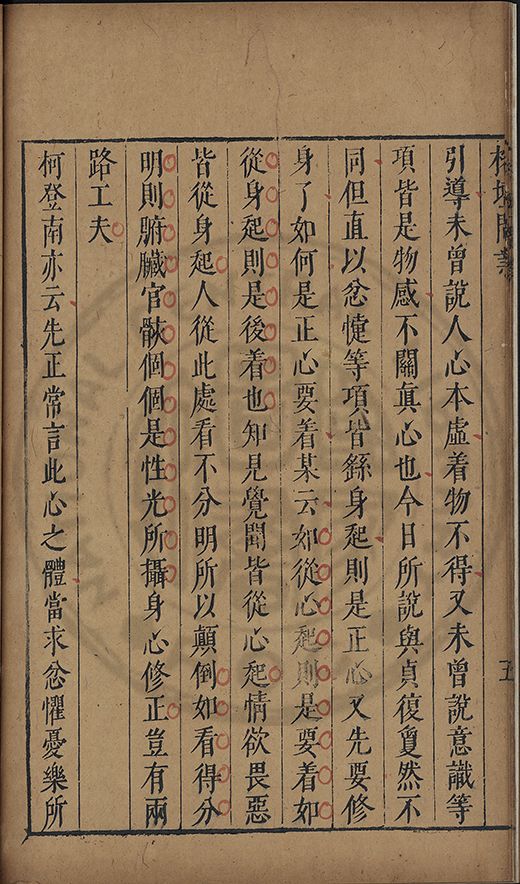 榕壇問業
五
引導未曾說人心本虛着物不得又未曾說意識等
項皆是物感不關眞心也今日所說與貞復夐然不
同但直以忿懥等項皆繇身起則是正心又先要修
身了如何是正心要着某云如從心起則是要着如
從身起則是後着也知見覺聞皆從心起情欲畏惡
皆從身起人從此處看不分明所以顛倒如看得分
明則腑臟官骸個個是性光所攝身心修正豈有兩
路工夫
柯登南亦云先正常言此心之體當求忿懼憂樂所